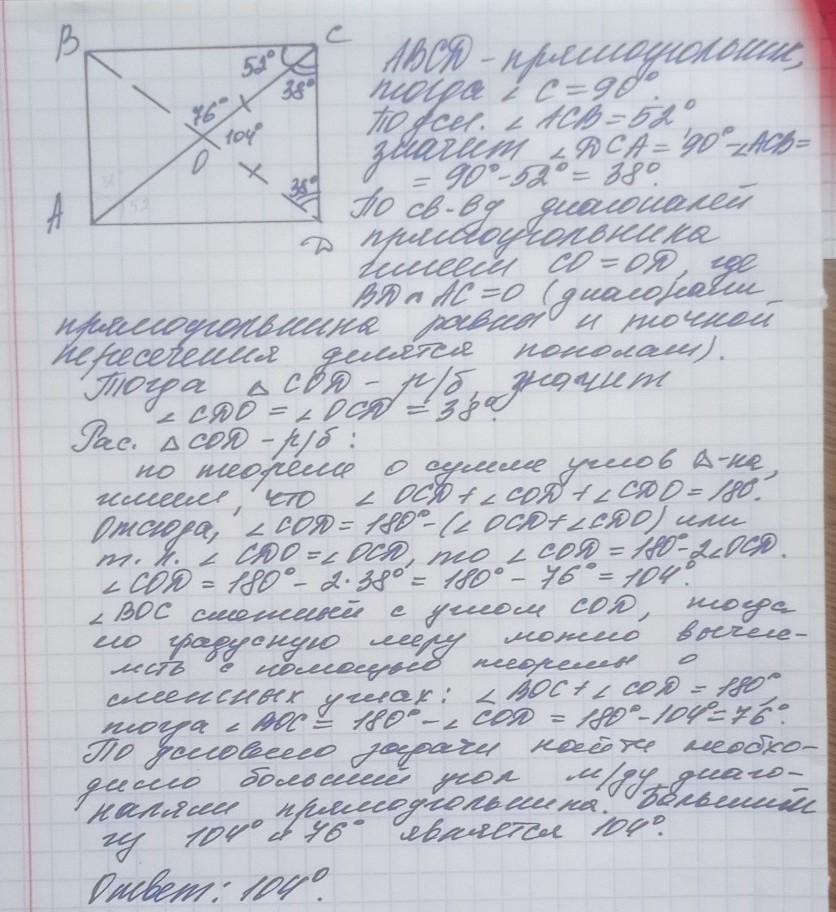 B
C
52°
38°
76°
104°
O
38°
A
52
D
ABCD - прямоугольник,
тогда ∠ C = 90°.
По усл. ∠ ACB = 52°,
значит ∠ DCA = 90° - ∠ACB =
= 90° - 52° = 38°.
По св-ву диагоналей
прямоугольника
имеем CO = OD, где
BD ∩ AC = O (диагонали
прямоугольника равны и точкой
пересечения делятся пополам).
Тогда △ COD - р/б, значит
∠ CDO = ∠ OCD = 38°.
Рас. △ COD - р/б :
по теореме о сумме углов △-ка,
имеем, что ∠ OCD + ∠ COD + ∠ CDO = 180°.
Отсюда, ∠ COD = 180° - (∠ OCD + ∠ CDO) или
т. к. ∠ CDO = ∠ OCD, то ∠ COD = 180° - 2∠OCD.
∠ COD = 180° - 2·38° = 180° - 76° = 104°.
∠ BOC смежный с углом COD, тогда
его градусную меру можно вычис-
лить с помощью теоремы о
смежных углах: ∠ BOC + ∠ COD = 180°,
тогда ∠ BOC = 180° - ∠ COD = 180° - 104° = 76°.
По условию задачи найти необхо-
димо больший угол м/ду диаго-
налями прямоугольника. Большим
из 104° и 76° является 104°.
Ответ: 104°.